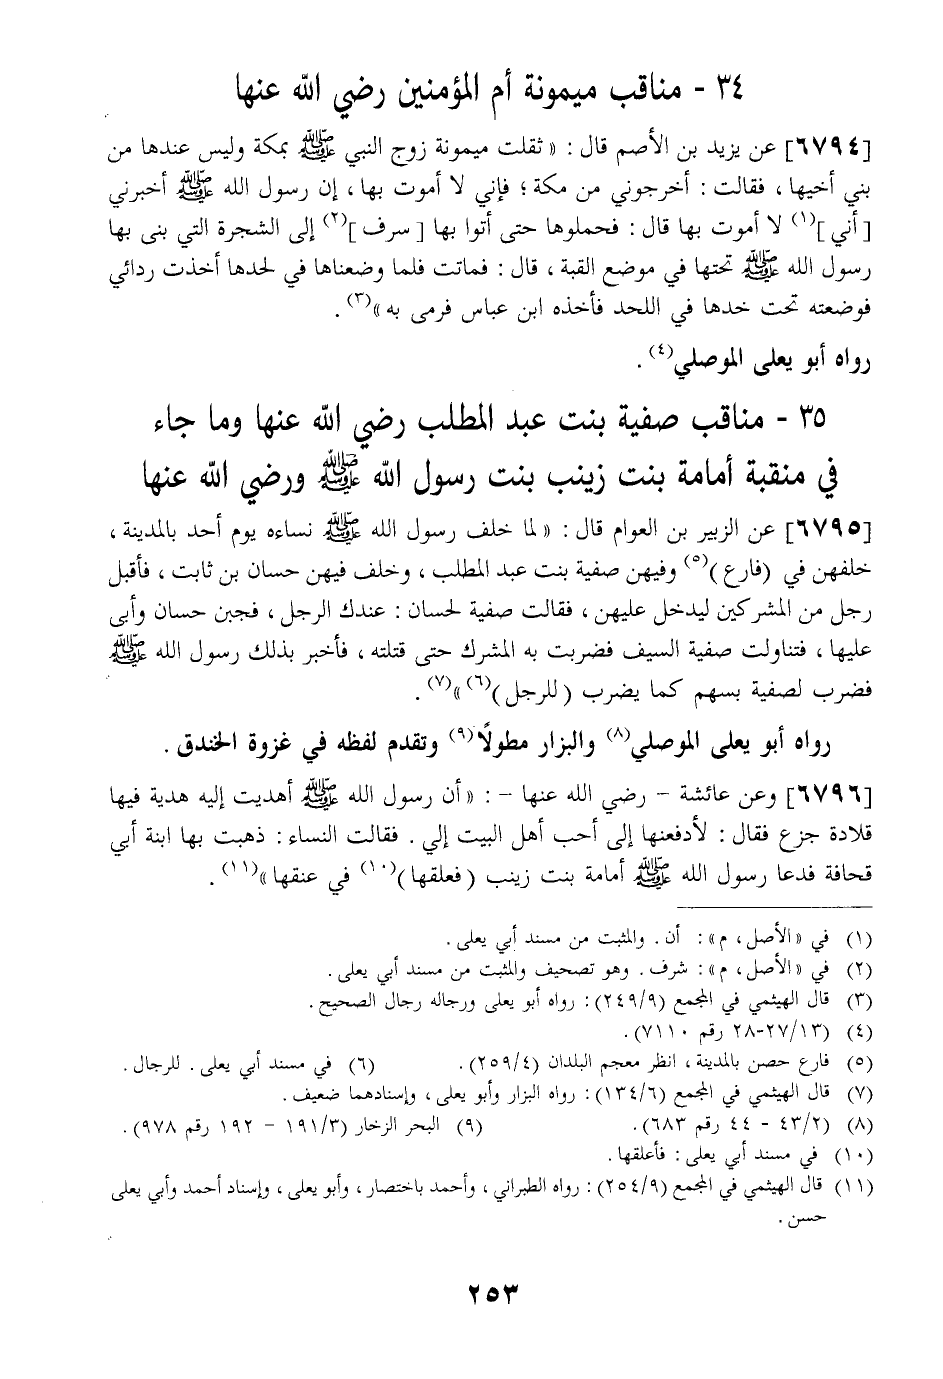 ٣٤ - مناقب ميمونة أم المؤمنين رضي الله عنها
[٦٧٩٤] عن يزيد بن الأصم قال : « ثقلت ميمونة زوج النبي ﷺ بمكة وليس عندها من
بني أخيها ، فقالت : أخرجوني من مكة ؛ فإني لا أموت بها ، إن رسول الله ﷺ أخبرني
[ أني ](١) لا أموت بها قال : فحملوها حتى أتوا بها [ سرف ](٢) إلى الشجرة التي بنى بها
رسول الله ﷺ تحتها في موضع القبة ، قال : فماتت فلما وضعناها في لحدها أخذت ردائي
فوضعته تحت خدها في اللحد فأخذه ابن عباس فرمى به »(٣) .
رواه أبو يعلى الموصلي(٤) .
٣٥ - مناقب صفية بنت عبد المطلب رضي الله عنها وما جاء
في منقبة أمامة بنت زينب بنت رسول الله ﷺ ورضي الله عنها
[٦٧٩٥] عن الزبير بن العوام قال : « لما خلف رسول الله ﷺ نساءه يوم أحد بالمدينة ،
خلفهن في (فارع )(٥) وفيهن صفية بنت عبد المطلب ، وخلف فيهن حسان بن ثابت ، فأقبل
رجل من المشركين ليدخل عليهن ، فقالت صفية لحسان : عندك الرجل ، فجبن حسان وأبى
عليها ، فتناولت صفية السيف فضربت به المشرك حتى قتلته ، فأخبر بذلك رسول الله ﷺ
فضرب لصفية بسهم كما يضرب ( للرجل )(٦) »(٧) .
رواه أبو يعلى الموصلي(٨) والبزار مطولًا(٩) وتقدم لفظه في غزوة الخندق .
[٦٧٩٦] وعن عائشة - رضي الله عنها - : « أن رسول الله ﷺ أهديت إليه هدية فيها
قلادة جزع فقال : لأدفعنها إلى أحب أهل البيت إلي . فقالت النساء : ذهبت بها ابنة أبي
قحافة فدعا رسول الله ﷺ أمامة بنت زينب ( فعلقها )(١٠) في عنقها »(١١) .
(١) في «الأصل ، م» : أن . والمثبت من مسند أبي يعلى .
(٢) في «الأصل ، م» : شرف . وهو تصحيف والمثبت من مسند أبي يعلى .
(٣) قال الهيثمي في المجمع (٢٤٩/٩) : رواه أبو يعلى ورجاله رجال الصحيح .
(٤) (٢٧/١٣-٢٨ رقم ٧١١٠) .
(٥) فارع حصن بالمدينة ، انظر معجم البلدان (٢٥٩/٤) . (٦) في مسند أبي يعلى . للرجال .
(٧) قال الهيثمي في المجمع (١٣٤/٦) : رواه البزار وأبو يعلى ، وإسنادهما ضعيف .
(٨) (٤٣/٢ - ٤٤ رقم ٦٨٣) . (٩) البحر الزخار (١٩١/٣ - ١٩٢ رقم ٩٧٨) .
(١٠) في مسند أبي يعلى : فأعلقها .
(١١) قال الهيثمي في المجمع (٢٥٤/٩) : رواه الطبراني ، وأحمد باختصار ، وأبو يعلى ، وإسناد أحمد وأبي يعلى
حسن .
٢٥٣